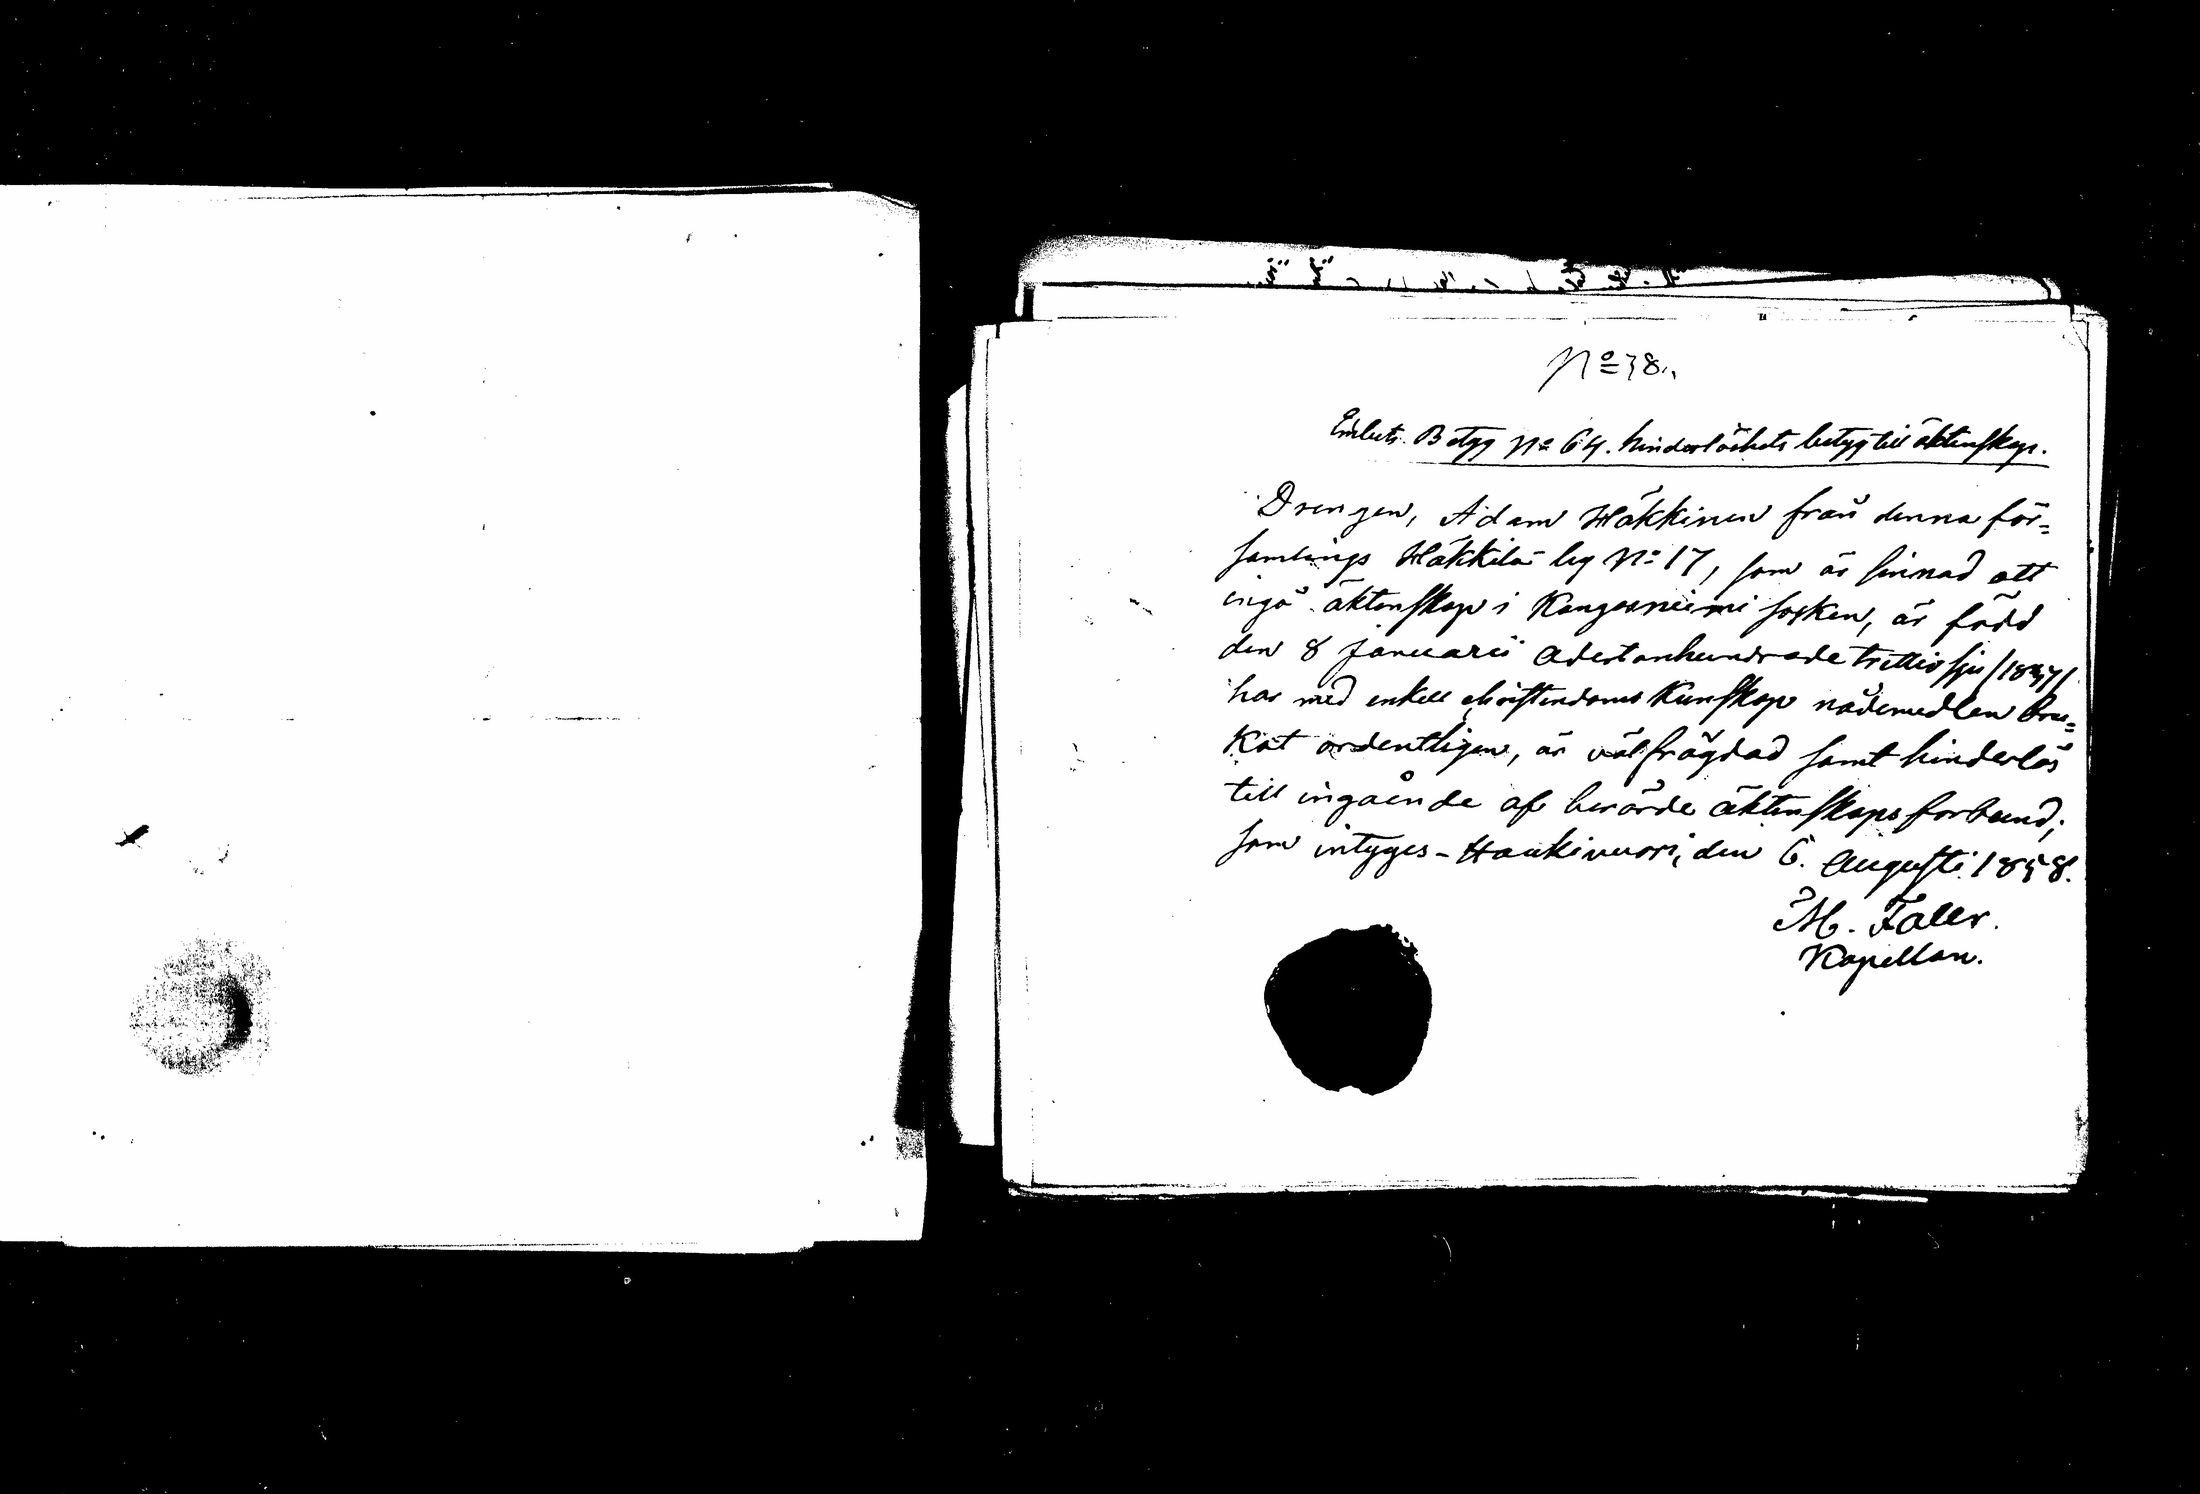 No 38.
Embets Betyg No 64. hinderlöshets betyg till äktenskap.
Drengen, Adam Häkkinen från denna för=
samlings Häkkilä by No 17, som är sinnad att
ingå äktenskap i Kangasniemi socken, är född
den 8 Januarii Adertonhundrade trettiosju /1837/
har med enkell christendoms Kunskap nådemedlen bru=
kat ordentligen, är välfrägdad samt hinderlös
till ingående af berörde äktenskaps forbund;
som intyges - Haukivuori, den 6. Augusti 1858.
M. Faler.
Kapellan.